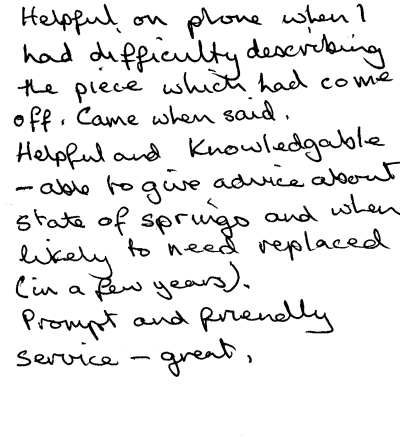 Helpful on phone when I
had difficulty describing
the piece which had come
off. Came when said.
Helpful and Knowledgable
– able to give advice about
state of springs and when
likely to need replaced
(in a few years).
Prompt and friendly
service – great.